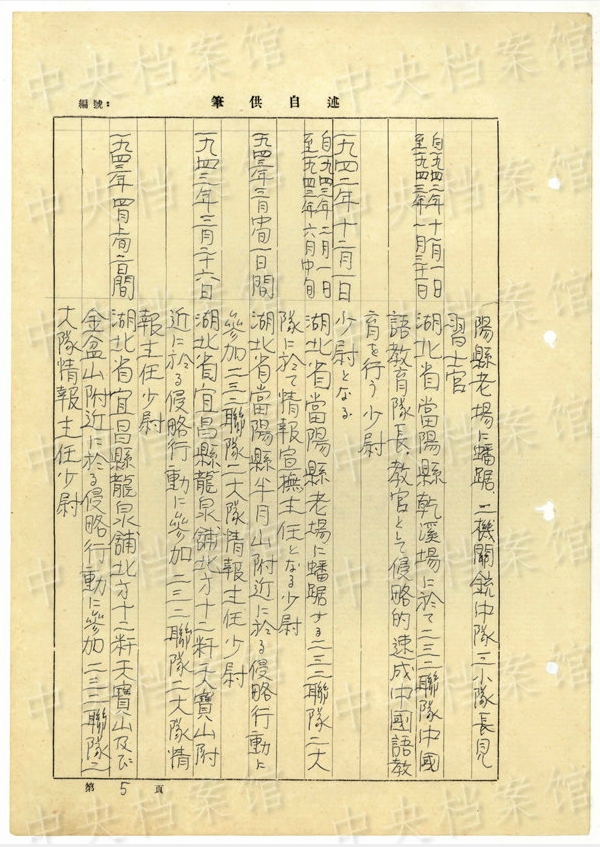 編號:
筆供自述
陽縣老場に蟠踞、二機關銃中隊三小隊長見
習士官
自一九四二年十一月一日
至一九四三年一月三十日
湖北省當陽縣乾溪場に於て二三二聯隊中國
語教育隊長、教官として侵略的速成中國語教
育を行う 少尉
一九四二年十二月一日 少尉となる
自一九四三年二月一日
至一九四三年六月中旬
湖北省當陽縣老場に蟠踞する二三二聯隊二大
隊に於て情報宣撫主任となる少尉
一九四三年三月中旬一日間 湖北省當陽縣半月山附近に於る侵略行動に
參加二三二聯隊二大隊情報主任少尉
一九四三年三月二十六日 湖北省宜昌縣龍泉舖北方十二粁天寶山附
近に於る侵略行動に參加二三二聯隊二大隊情
報主任少尉
一九四三年四月上旬二日間 湖北省宜昌縣龍泉舖北方十二粁天寶山及び
金盆山附近に於る侵略行動に參加二三二聯隊二
大隊情報主任少尉
第5頁
中央档案馆